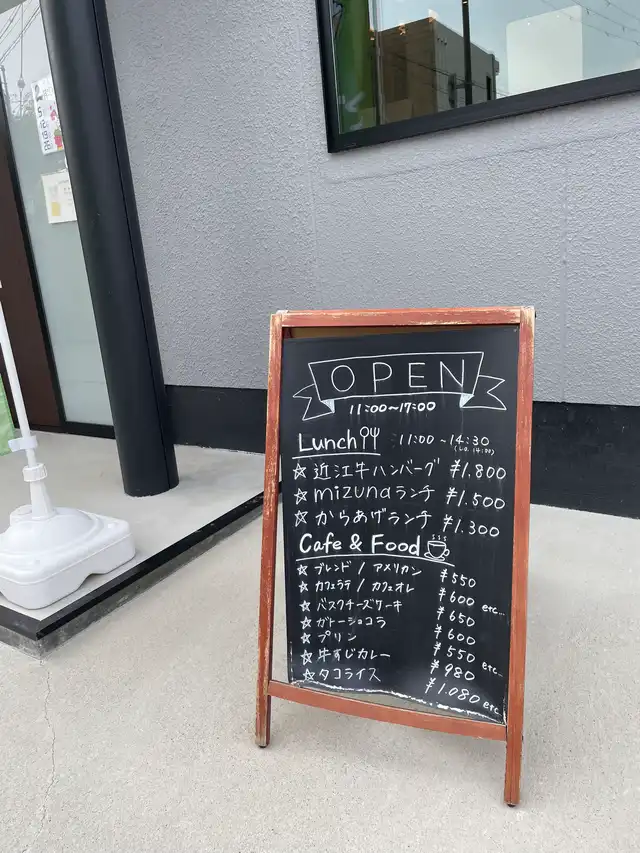 OPEN
11:00~17:00
Lunch 11:00~14:30
(L.O. 14:00)
☆近江牛ハンバーグ ¥1.800
☆mizunaランチ ¥1.500
☆からあげランチ ¥1.300
Cafe & Food
☆ブレンド / アメリカン ¥550
☆カフェラテ / カフェオレ ¥600 etc...
☆バスクチーズケーキ ¥650
☆ガトーショコラ ¥600
☆プリン ¥550 etc...
☆牛すじカレー ¥980
☆タコライス ¥1.080 etc...